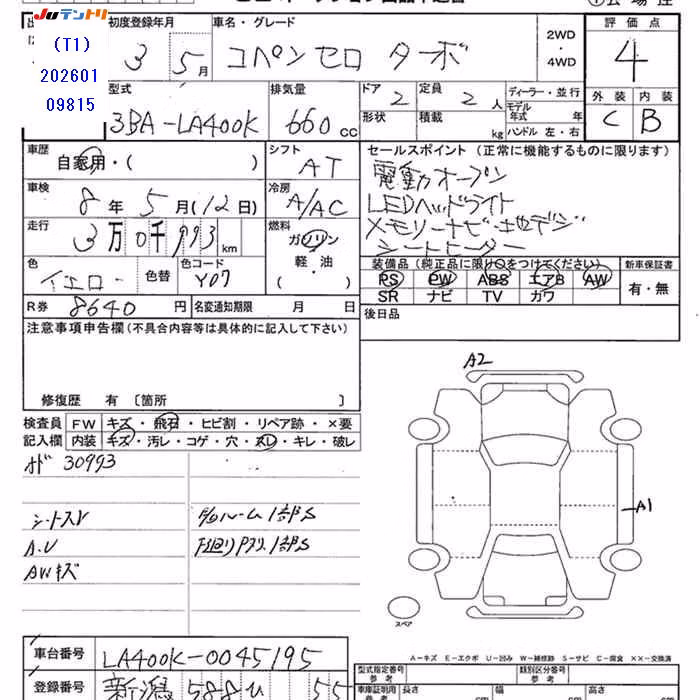 Juテントリ
(T1)
202601
09815
初度登録年月
3 5月
車名・グレード
コペンセロ ターボ
2WD
・
4WD
評価点
4
外装 内装
C B
型式
3BA-LA400K
排気量
660 cc
ドア 2
定員 2 人
ディーラー・並行
モデル年式 年
形状
積載 kg
ハンドル 左・右
車歴
自家用・( )
シフト
AT
セールスポイント (正常に機能するものに限ります)
電動オープン
LEDヘッドライト
メモリーナビ・地デジ
シートヒーター
車検
8年 5月(12日)
冷房
A/AC
走行
3万0千993km
燃料
ガソリン
軽・油
( )
色
イエロー
色替
色コード
Y07
装備品 (純正品に限り○をつけてください)
PS PW ABS エアB AW
SR ナビ TV カワ
新車保証書
有・無
R券 8640 円
名変通知期限 月 日
後日品
注意事項申告欄 (不具合内容等は具体的に記入して下さい)
修復歴 有 〔箇所 〕
検査員
記入欄
FW キズ・飛石・ヒビ割・リペア跡・×要
内装 キズ・汚レ・コゲ・穴・スレ・キレ・破レ
30993
シートスレ
A.U
AWキズ
F/Dルーム1部S
下廻りP多り.1部S
A2
A1
スペア
A－キズ E－エクボ U－凹み W－補修跡 S－サビ C－腐食 ××－交換済
車台番号
LA400K-0045195
登録番号
新潟 588 ひ 55
型式指定番号
参考
類別区分番号
参考
車庫証明用
参考
長さ cm
幅 cm
高さ cm